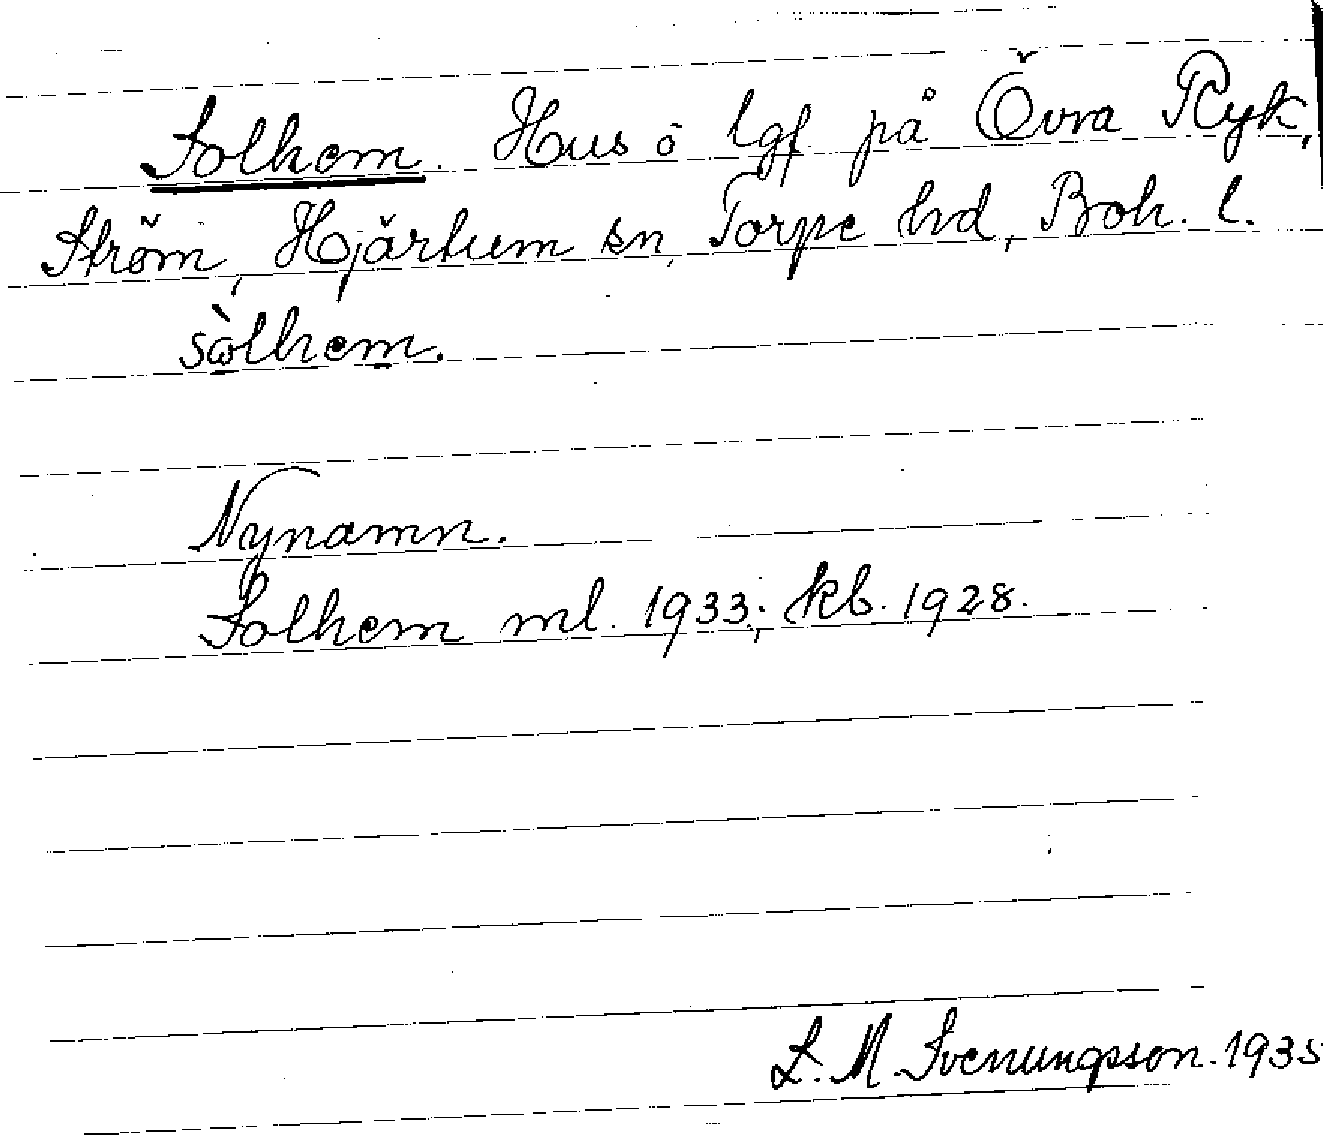 Solhem. Hus o lgf på Övra Ryk,
Ström, Hjärtum sn, Torpe hd, Boh. l.
sòlhem.
Nynamn.
Solhem ml. 1933; kb. 1928.
L. M. Svenungsson. 1935